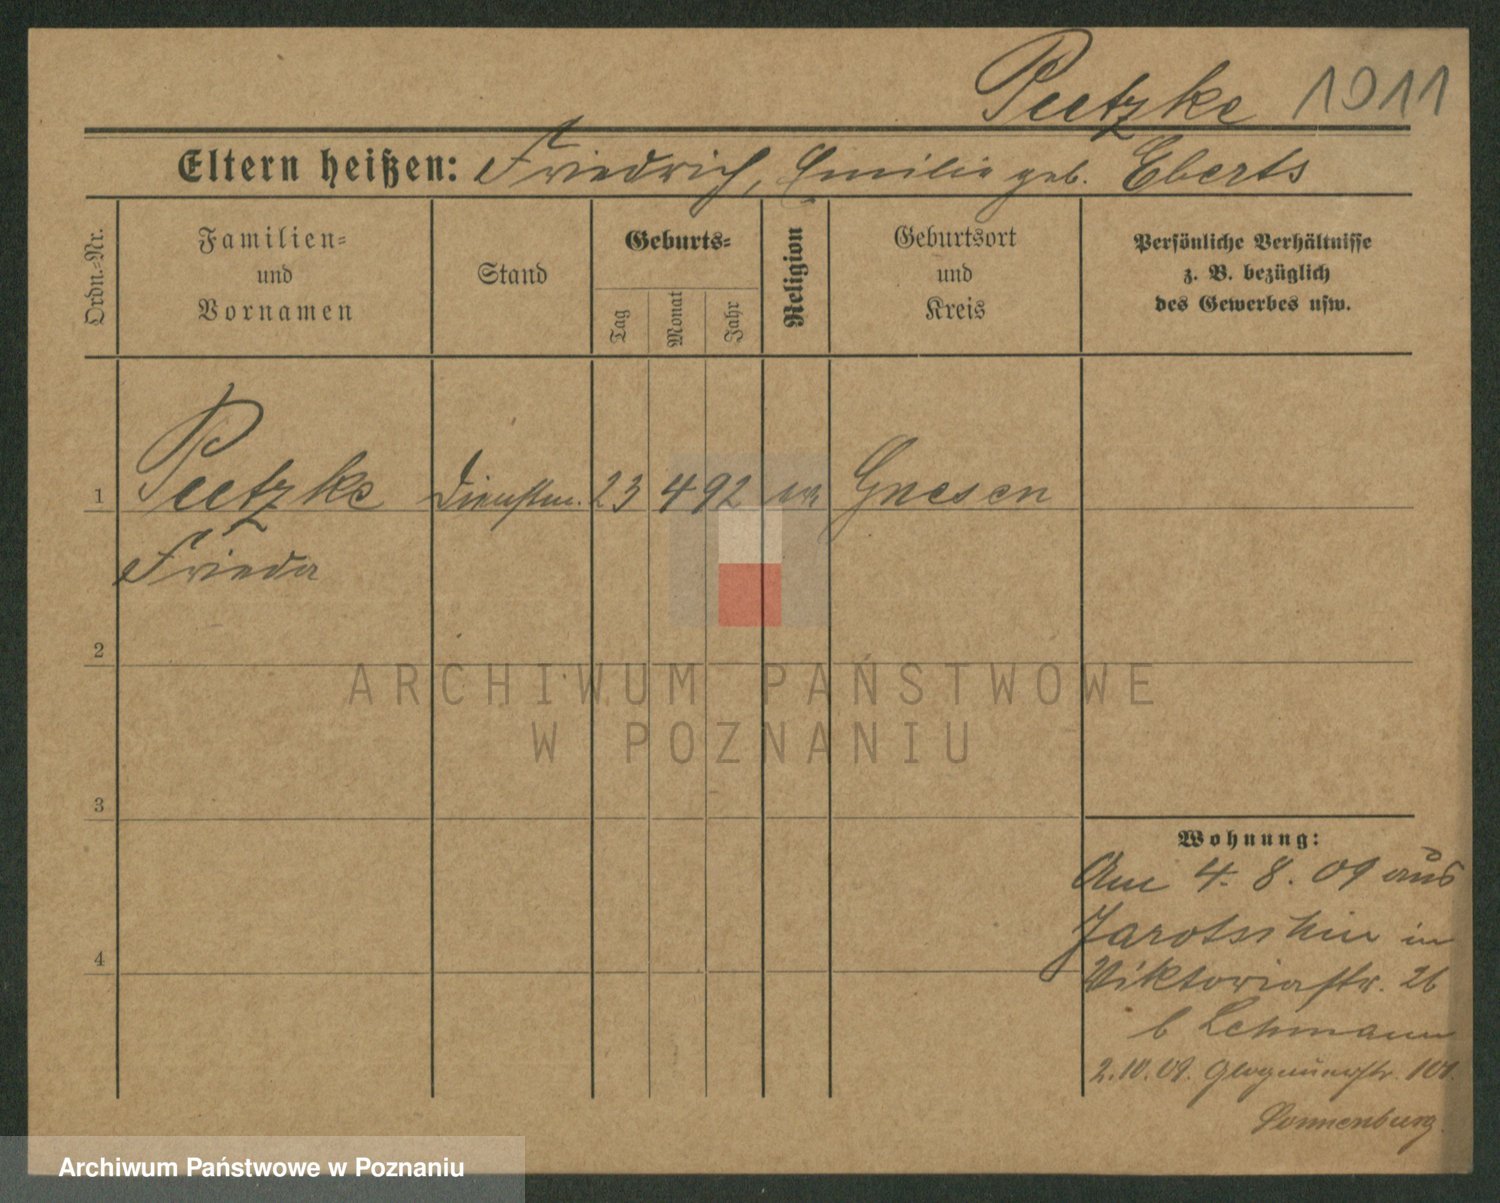 Peetzke 1911
Eltern heißen: Friedrich, Emilie geb. Eberts
Ordn.-Nr.
Familien-
und
Vornamen
Stand
Geburts-
Tag
Monat
Jahr
Religion
Geburtsort
und
Kreis
Persönliche Verhältnisse
z. B. bezüglich
des Gewerbes usw.
1 Peetzke Dienstm. 23 4 92 ev Gnesen
Frieda
2
3
4
Wohnung:
Am 4. 8. 09 aus
Jarotschin in
Viktoriastr. 26
b Lehmann
2.10.09. Glogauerstr. 101.
Sonnenburg.
ARCHIWUM PAŃSTWOWE
W POZNANIU
Archiwum Państwowe w Poznaniu